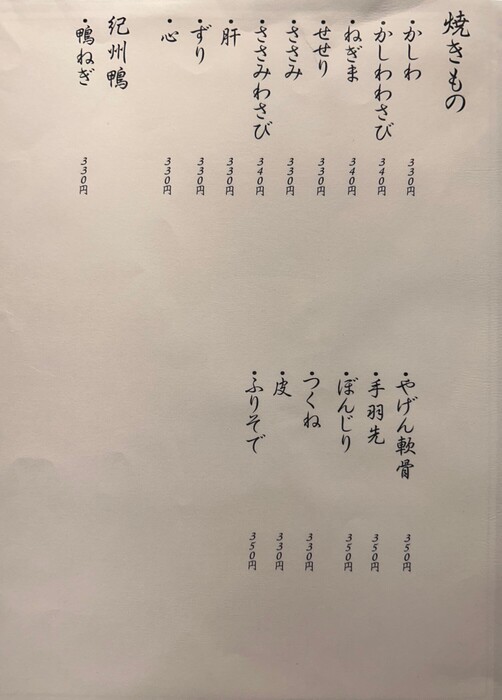 焼きもの
・かしわ 330円
・かしわわさび 340円
・ねぎま 340円
・せせり 330円
・ささみ 330円
・ささみわさび 340円
・肝 330円
・ずり 330円
・心 330円
紀州鴨
・鴨ねぎ 330円
・やげん軟骨 350円
・手羽先 350円
・ぼんじり 350円
・つくね 330円
・皮 330円
・ふりそで 350円